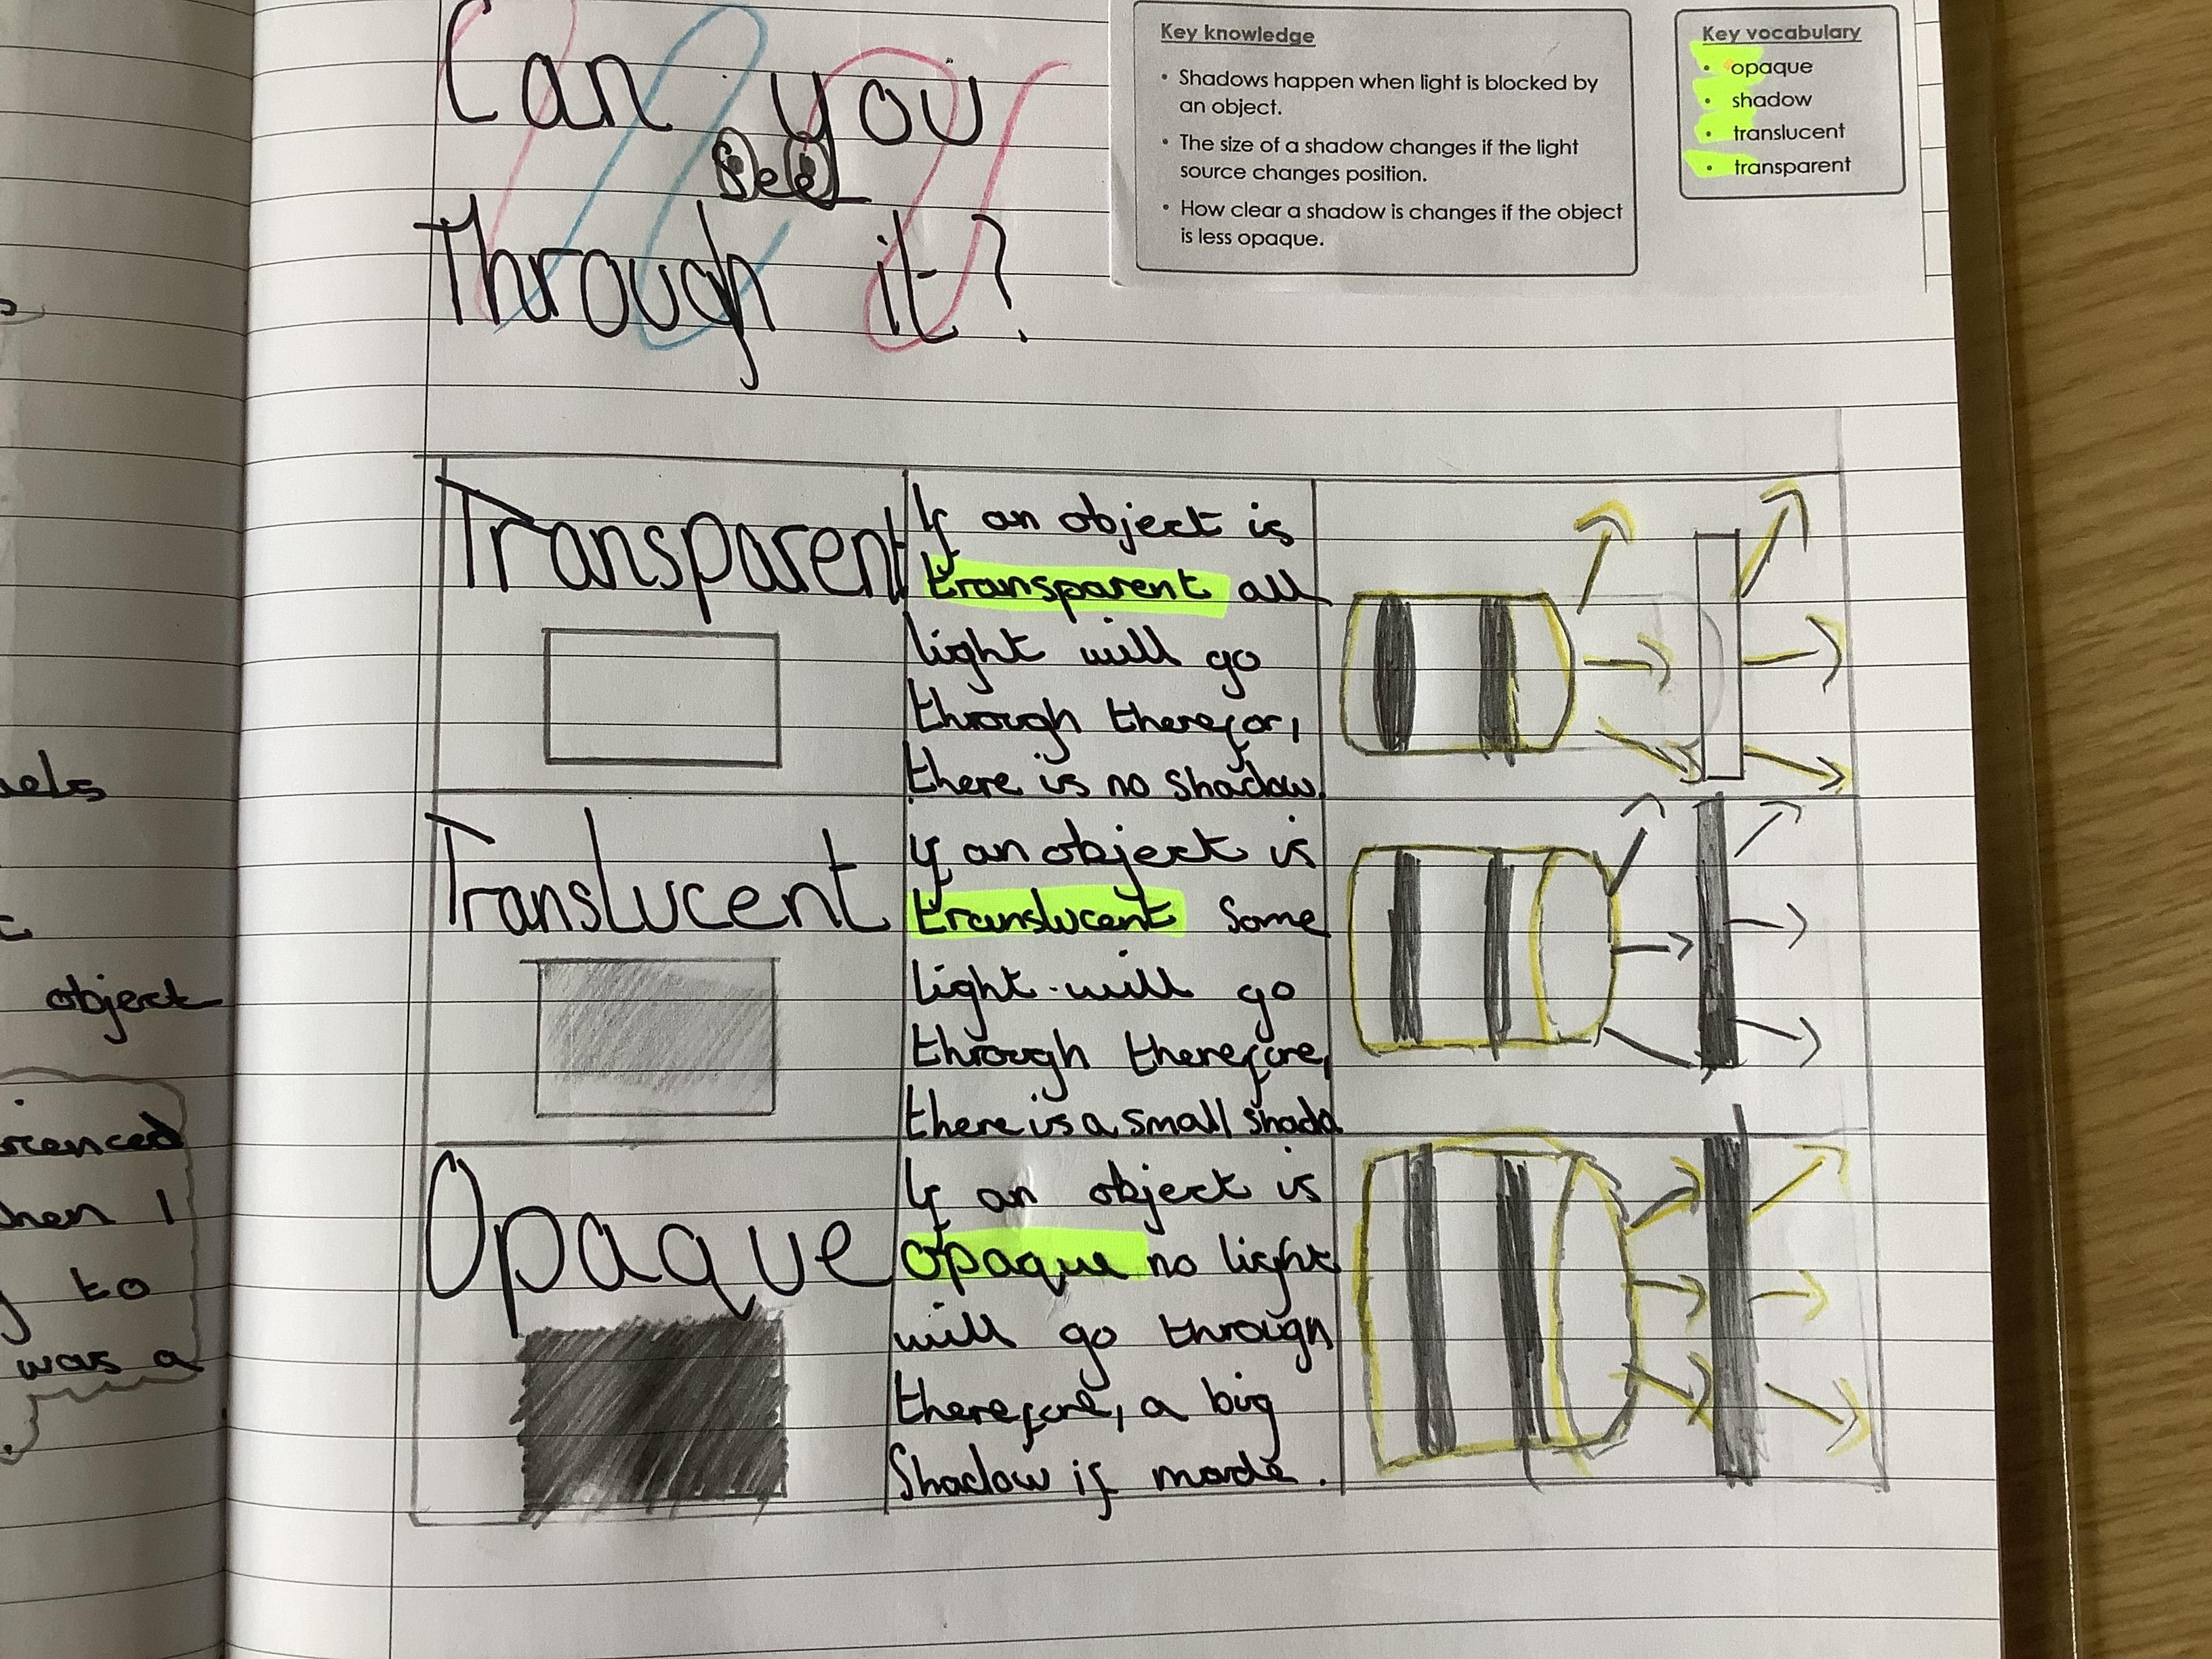 Can you
see
Through it?
Key knowledge
• Shadows happen when light is blocked by
an object.
• The size of a shadow changes if the light
source changes position.
• How clear a shadow is changes if the object
is less opaque.
Key vocabulary
• opaque
• shadow
• translucent
• transparent
Transparent
If an object is
transparent all
light will go
through therefor,
there is no shadow.
Translucent
If an object is
translucent some
light will go
through therefore,
there is a small shado
Opaque
If an object is
opaque no light
will go through
therefore, a big
Shadow is made.
object
to
was a